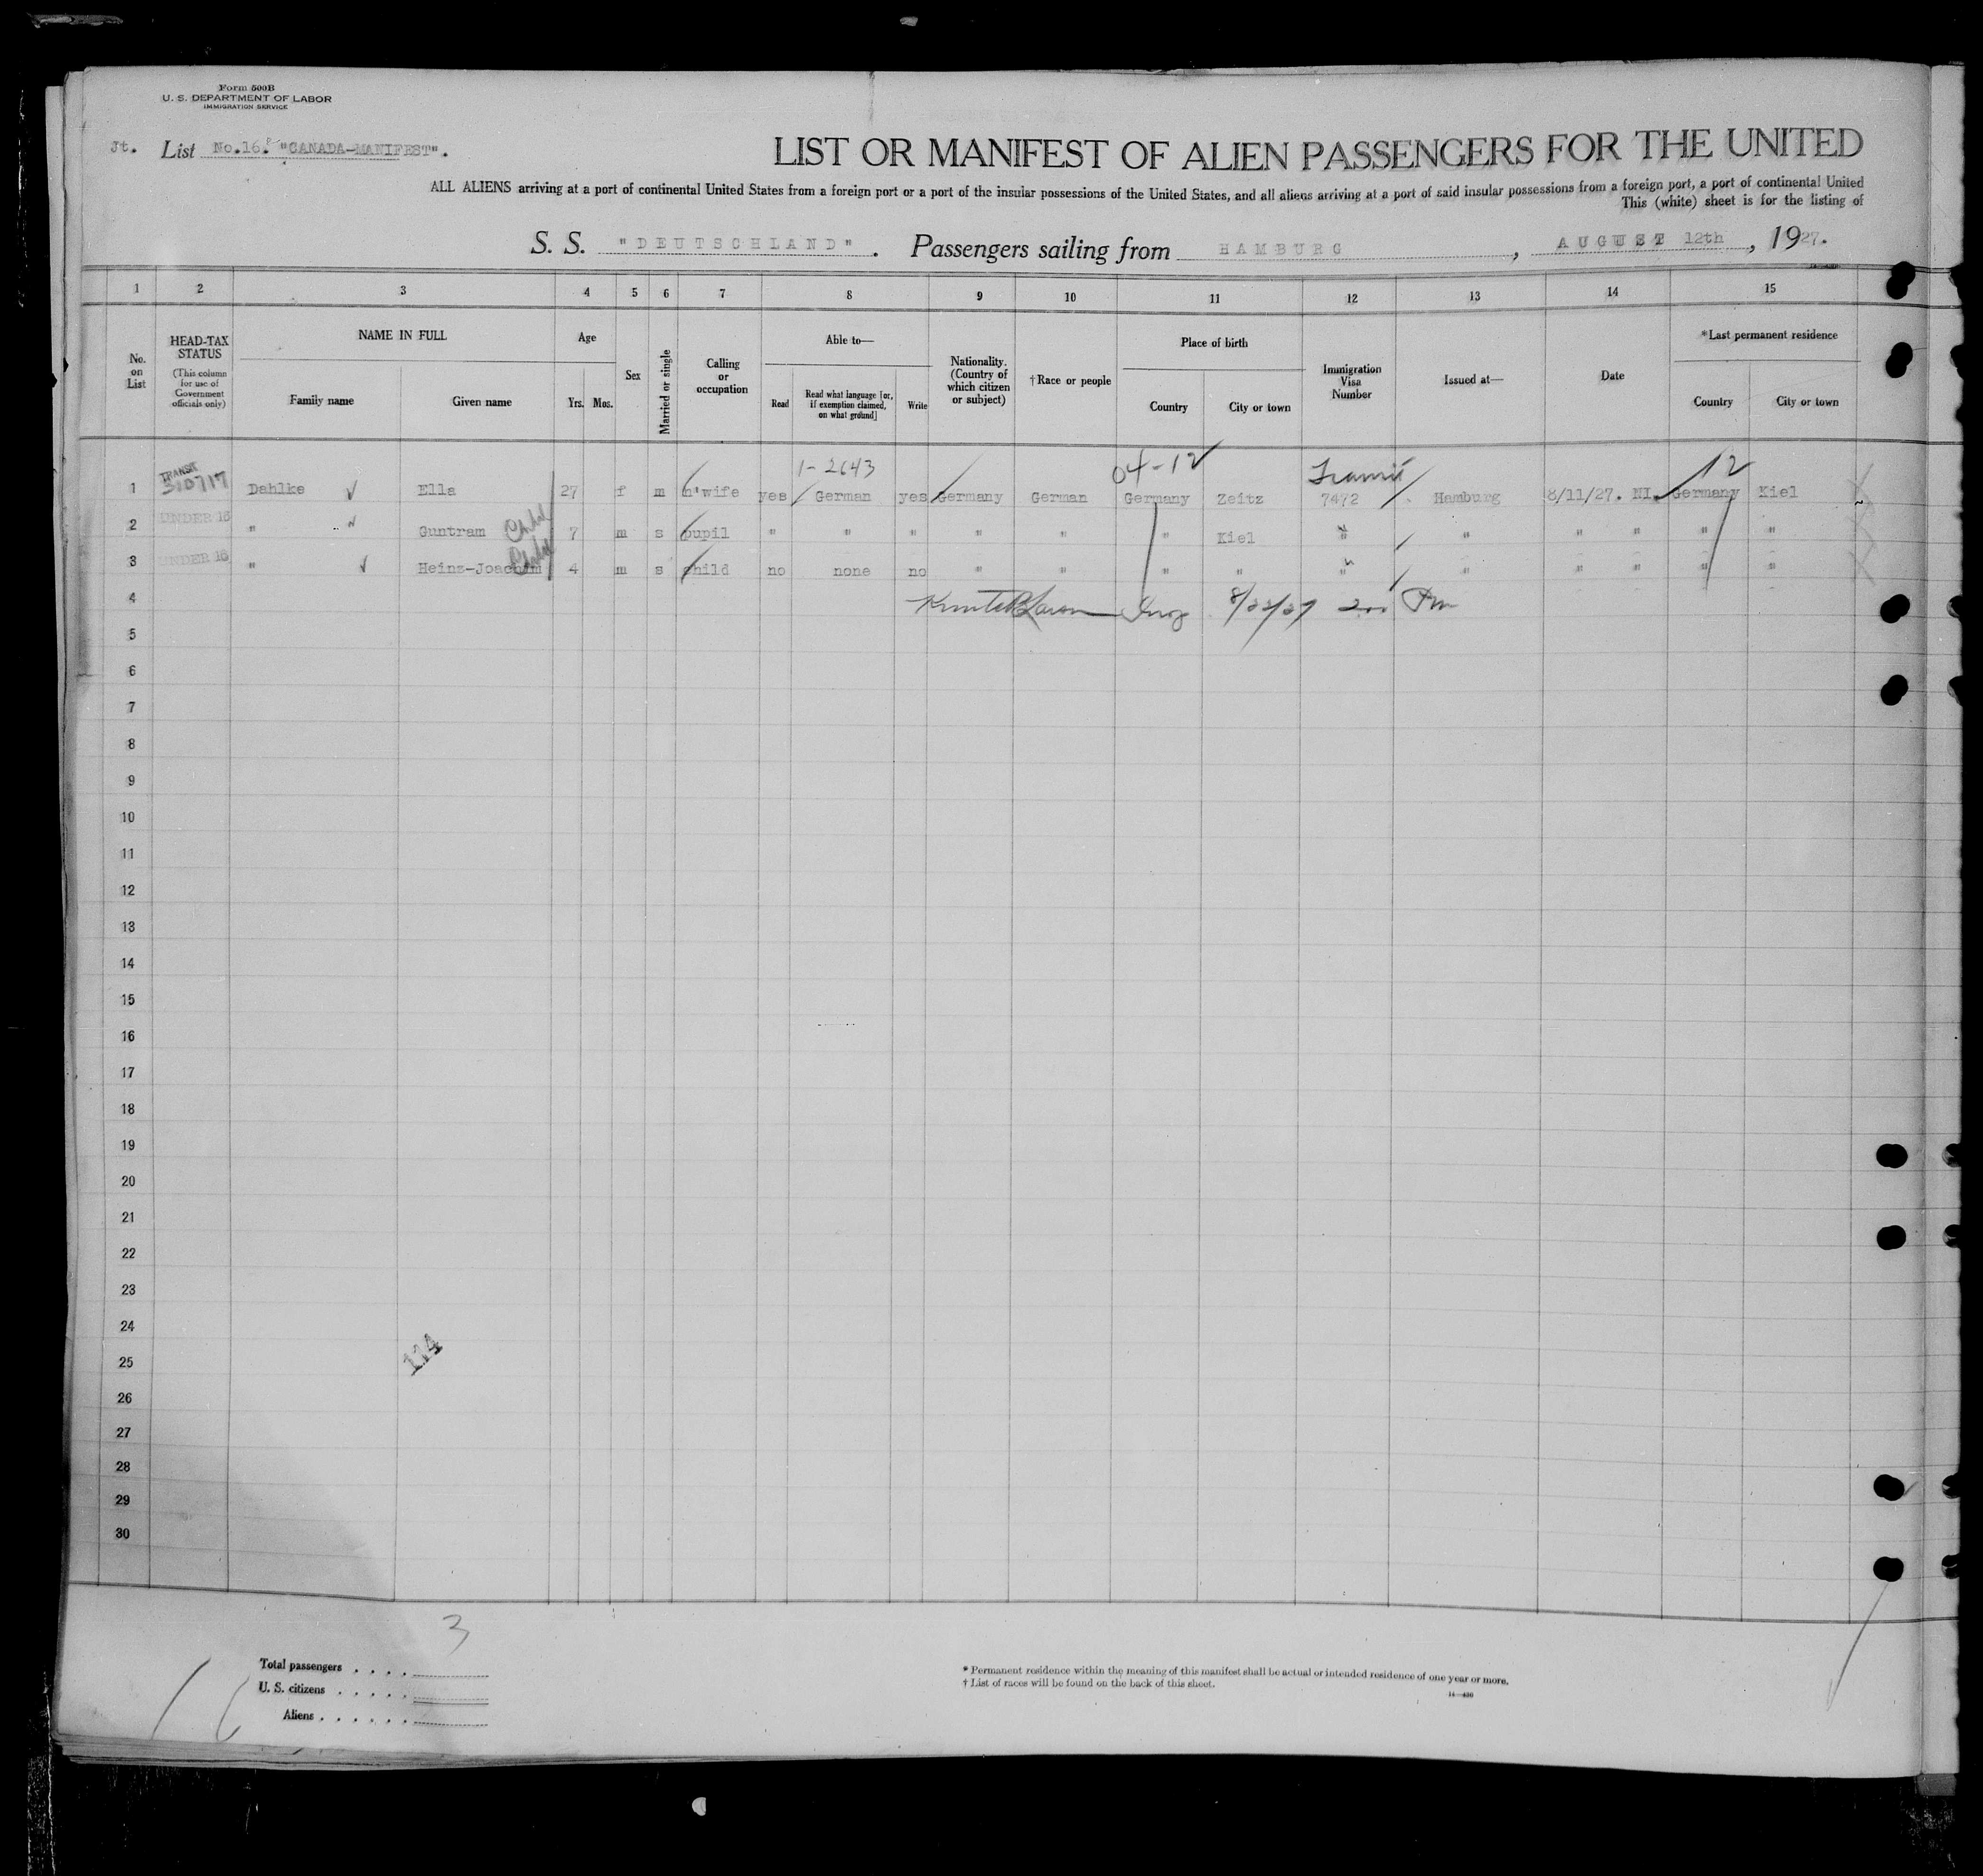 Form 500B
U. S. DEPARTMENT OF LABOR
IMMIGRATION SERVICE
Jt. List No.16. "CANADA-MANIFEST".
LIST OR MANIFEST OF ALIEN PASSENGERS FOR THE UNITED
ALL ALIENS arriving at a port of continental United States from a foreign port or a port of the insular possessions of the United States, and all aliens arriving at a port of said insular possessions from a foreign port, a port of continental United
This (white) sheet is for the listing of
S. S. "DEUTSCHLAND". Passengers sailing from HAMBURG, AUGUST 12th, 1927.
1 2 3 4 5 6 7 8 9 10 11 12 13 14 15
No. on List
HEAD-TAX STATUS (This column for use of Government officials only)
NAME IN FULL
Family name Given name
Age
Yrs. Mos.
Sex
Married or single
Calling or occupation
Able to—
Read Read what language [or, if exemption claimed, on what ground] Write
Nationality. (Country of which citizen or subject)
†Race or people
Place of birth
Country City or town
Immigration Visa Number
Issued at—
Date
*Last permanent residence
Country City or town
1-2643 04-12 Transit 12
TRANSIT
1 310717 Dahlke Ella 27 f m h'wife yes German yes Germany German Germany Zeitz 7472 Hamburg 8/11/27. NI. Germany Kiel
2 UNDER 16 " Guntram 7 m s pupil " " " " " " Kiel " " " " " "
3 UNDER 16 " Heinz-Joachim 4 m s child no none no " " " " " " " " " "
4 8/22/27 200 Pm
5
6
7
8
9
10
11
12
13
14
15
16
17
18
19
20
21
22
23
24
25
26
27
28
29
30
114
3
Total passengers . . . .
U. S. citizens . . . . .
Aliens . . . . . .
* Permanent residence within the meaning of this manifest shall be actual or intended residence of one year or more.
† List of races will be found on the back of this sheet.